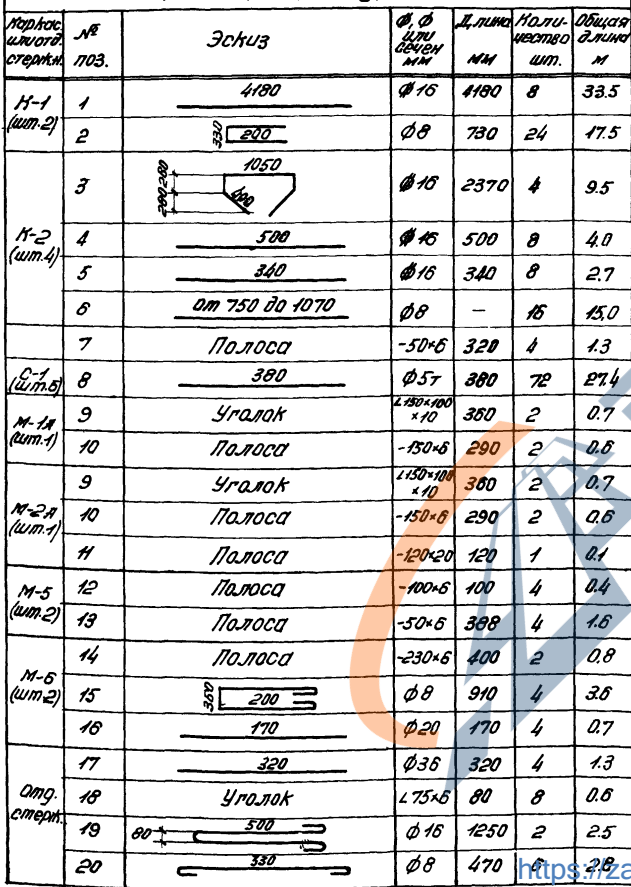 Каркас или отд. стержн. № поз. Эскиз Ф, ф или сечен мм Длина мм Коли-чество шт. Общая длина м
К-1 (шт.2) 1 4180 Ф16 4180 8 33.5
2 330 200 ф8 730 24 17.5
К-2 (шт.4) 3 1050 280 280 Ф16 2370 4 9.5
4 500 Ф16 500 8 4.0
5 340 Ф16 340 8 2.7
6 от 750 до 1070 ф8 — 16 15,0
7 Полоса -50×6 320 4 1.3
С-1 (шт.6) 8 380 ф5т 380 72 27.4
М-1л (шт.1) 9 Уголок L150×100×10 360 2 0.7
10 Полоса -150×6 290 2 0.6
М-2л (шт.1) 9 Уголок L150×100×10 360 2 0.7
10 Полоса -150×6 290 2 0.6
11 Полоса -120×20 120 1 0.1
М-5 (шт.2) 12 Полоса -100×6 100 4 0.4
13 Полоса -50×6 388 4 1.6
М-6 (шт.2) 14 Полоса -230×6 400 2 0.8
15 360 200 ф8 910 4 3.6
16 170 ф20 170 4 0.7
Отд. стерж. 17 320 ф36 320 4 1.3
18 Уголок L75×6 80 8 0.6
19 80 500 ф16 1250 2 2.5
20 330 ф8 470 6 2.8
https://za